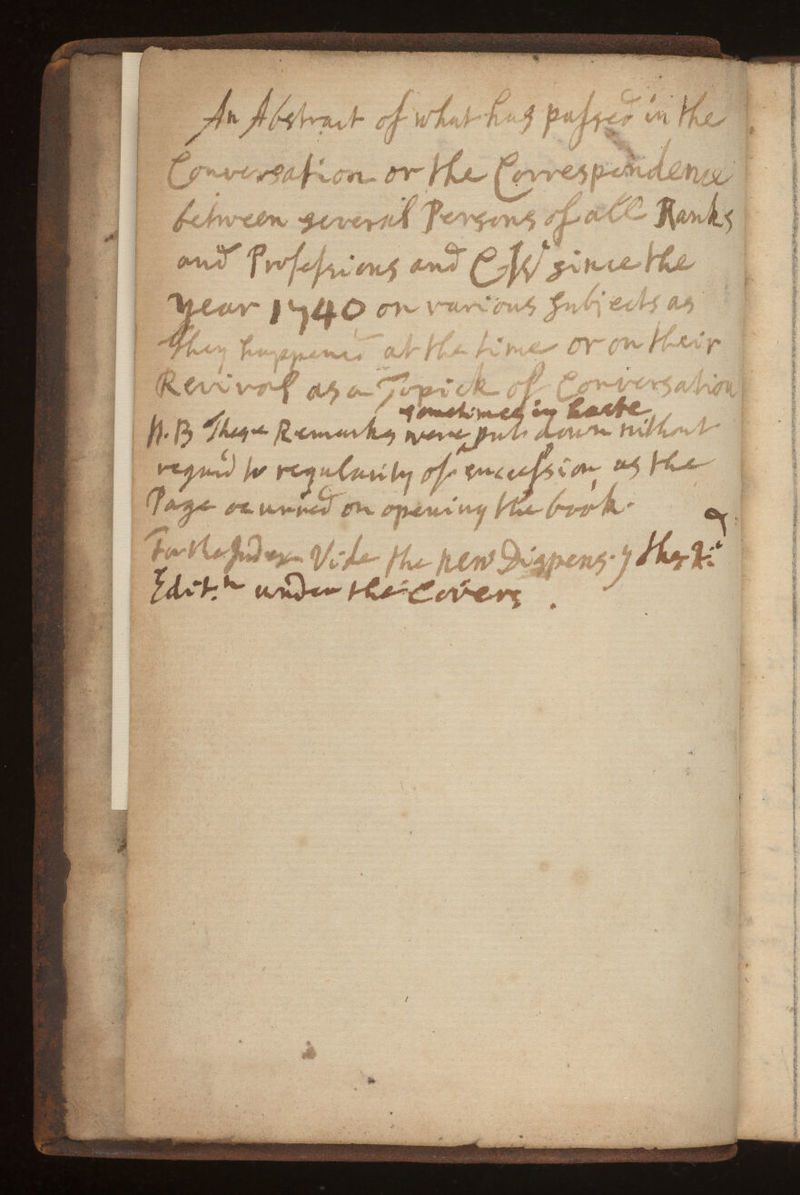 An Abstract of what has passed in the
Conversation or the Correspondence
between several Persons of all Ranks
and Professions and CW since the
Year 1740 on various Subjects as
They happened at the time or on their
Revival as a Topick of Conversation
sometimes in haste
N.B These Remarks were put down without
regard to regularity of succession, as the
Page occurred on opening the book.
For the Index Vide the new Dispens.y the
Edit.n under the Covers.